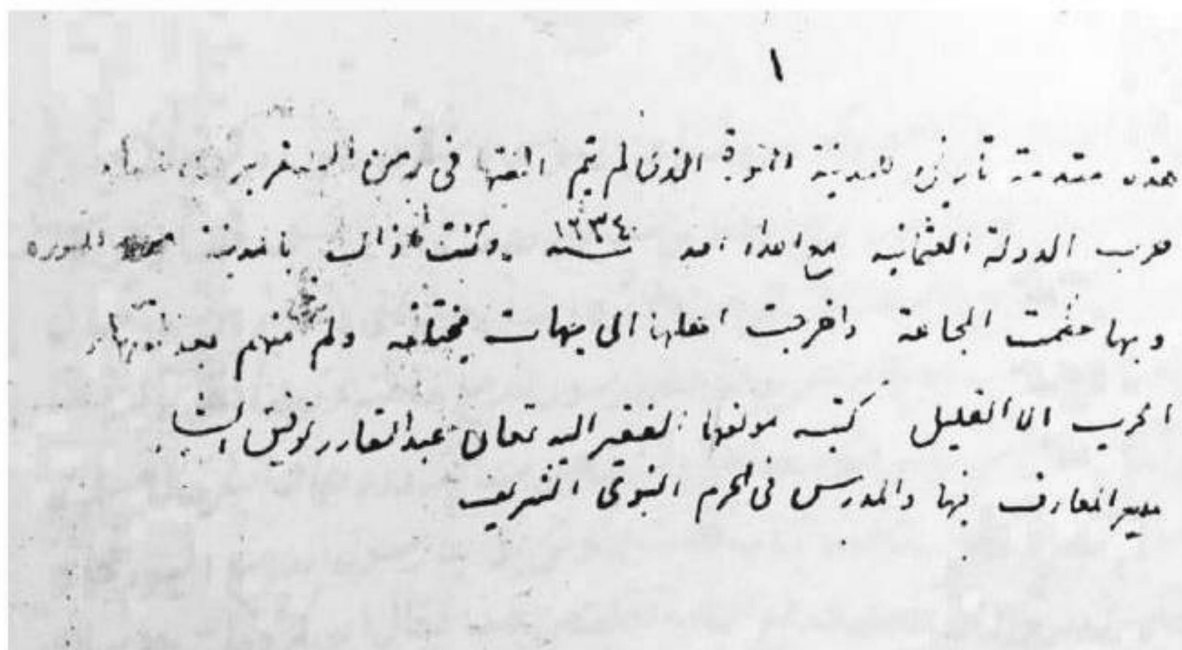 ١
هذه مقدمة تاريخ للمدينة المنورة الذي لم يتم الفتها في زمن السفر بر
حرب الدولة العثمانية مع اعداء سنة ١٣٣٤ وكنت اذ ذاك بالمدينة المنورة
وبها عظمت المجاعة واخرجت اهلها الى جهات مختلفة ولم منهم بعد
الحرب الا القليل كتبه مولفها الفقير اليه تعالى عبدالقادر توفيق الشلبي
مدير المعارف بها والمدرس في الحرم النبوي الشريف